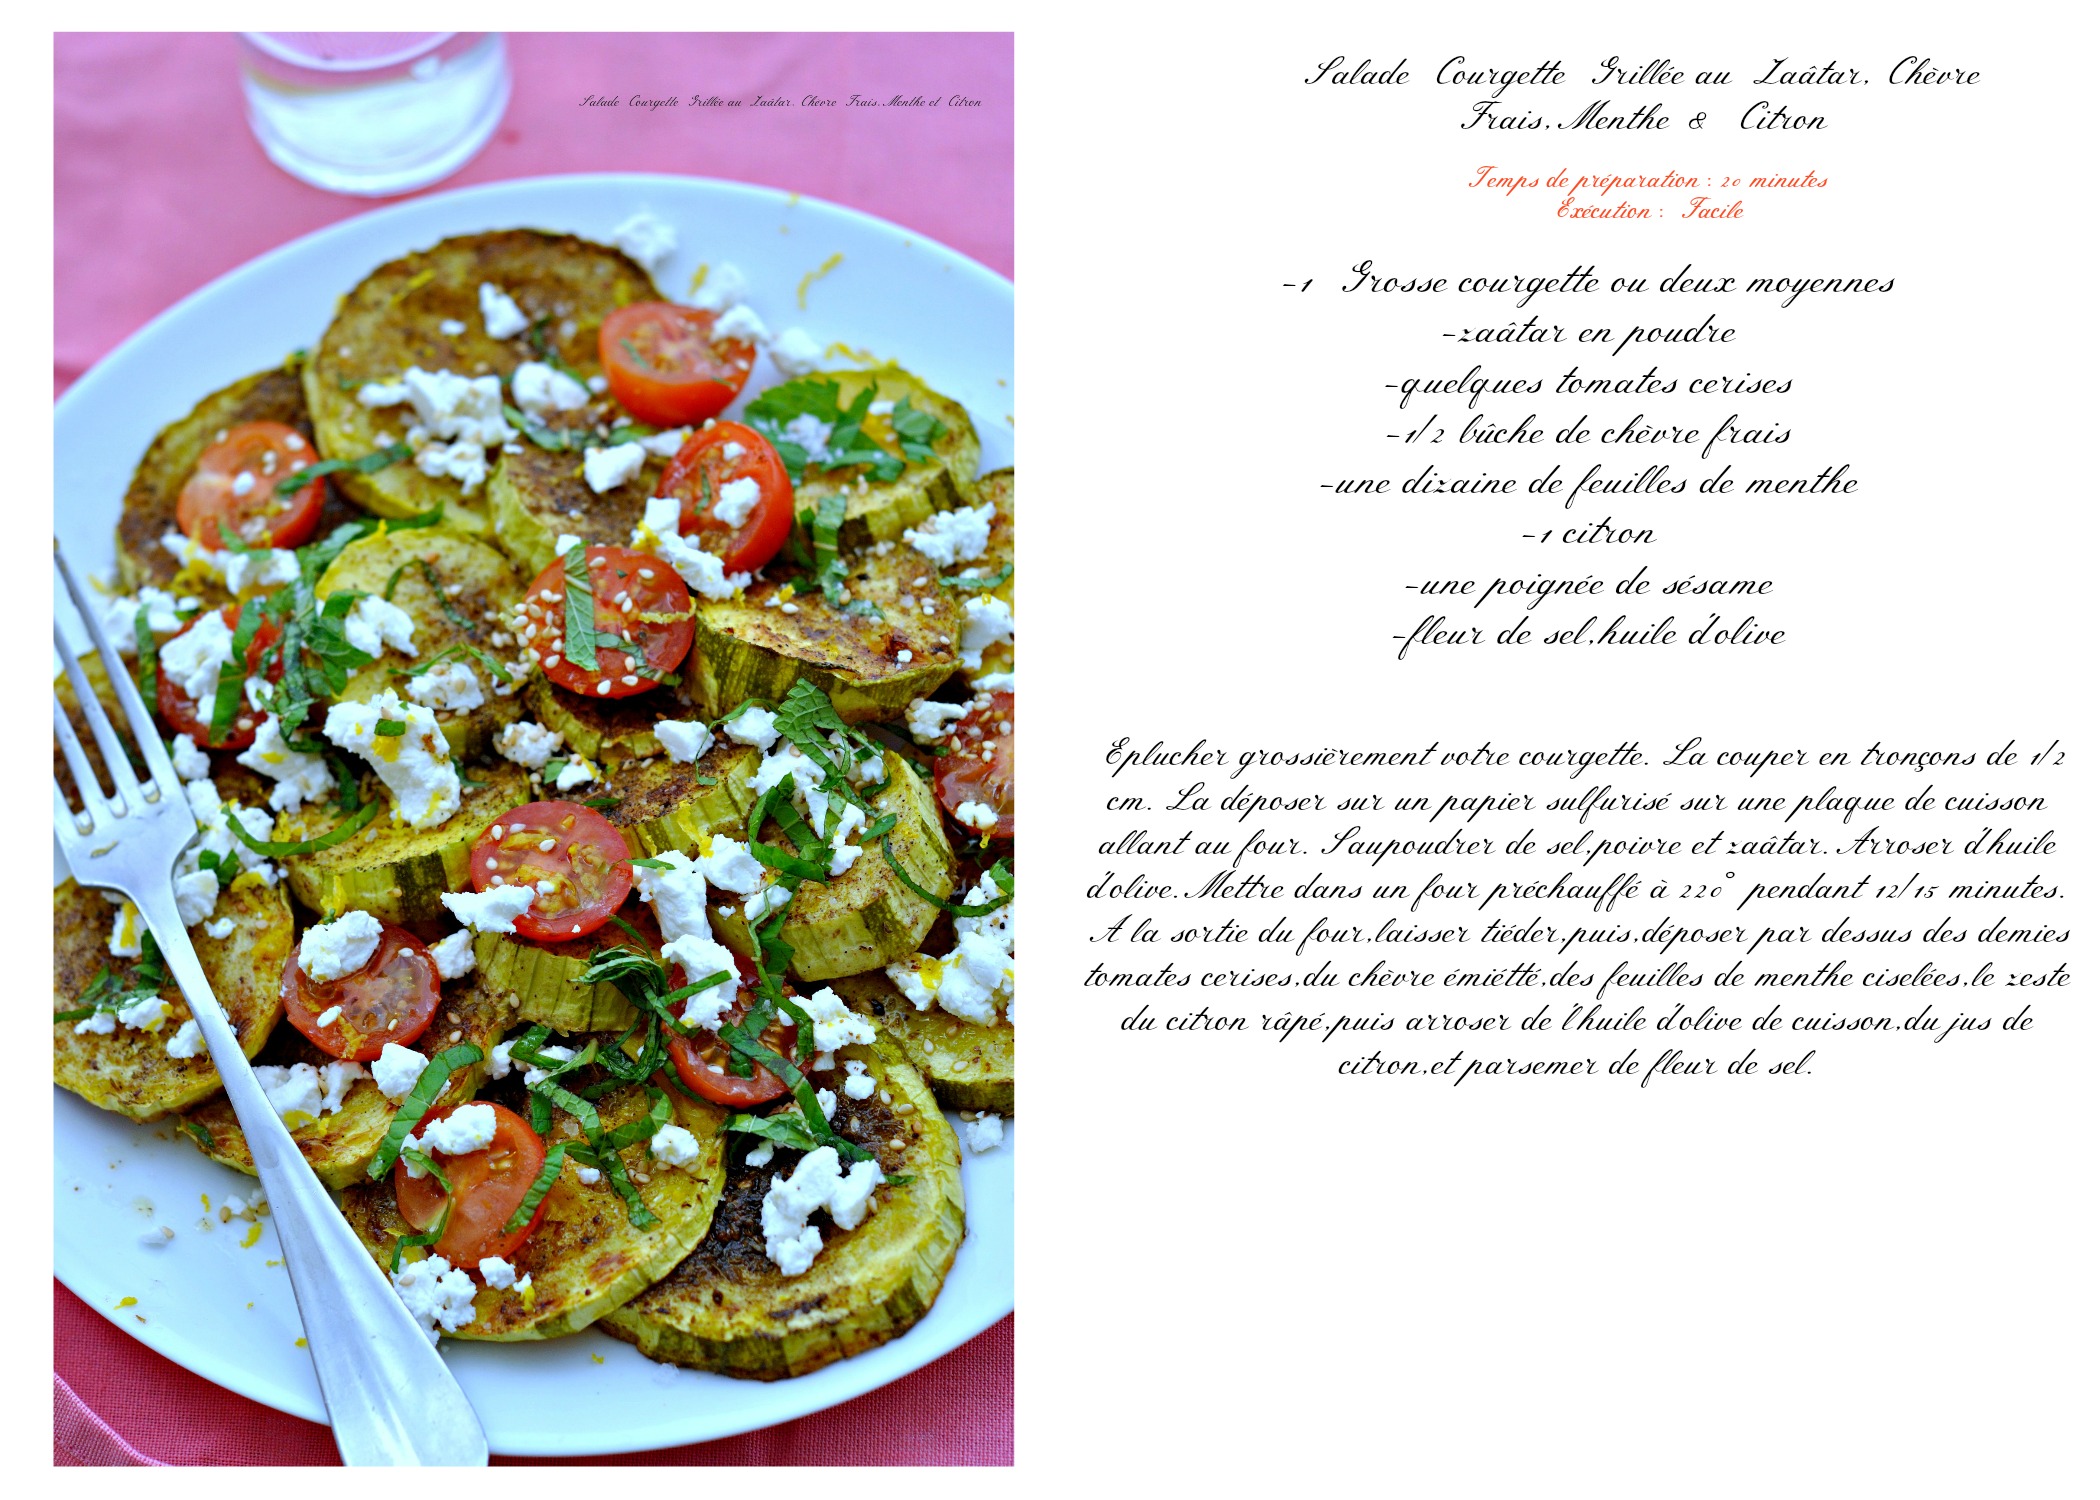 Salade Courgette Grillée au Zaâtar, Chèvre Frais, Menthe et Citron
Salade Courgette Grillée au Zaâtar, Chèvre
Frais, Menthe & Citron
Temps de préparation : 20 minutes
Exécution : Facile
-1 Grosse courgette ou deux moyennes
-zaâtar en poudre
-quelques tomates cerises
-1/2 bûche de chèvre frais
-une dizaine de feuilles de menthe
-1 citron
-une poignée de sésame
-fleur de sel,huile d'olive
Eplucher grossièrement votre courgette. La couper en tronçons de 1/2
cm. La déposer sur un papier sulfurisé sur une plaque de cuisson
allant au four. Saupoudrer de sel,poivre et zaâtar. Arroser d'huile
d'olive. Mettre dans un four préchauffé à 220° pendant 12/15 minutes.
A la sortie du four,laisser tiéder,puis,déposer par dessus des demies
tomates cerises,du chèvre émiétté,des feuilles de menthe ciselées,le zeste
du citron râpé,puis arroser de l'huile d'olive de cuisson,du jus de
citron,et parsemer de fleur de sel.